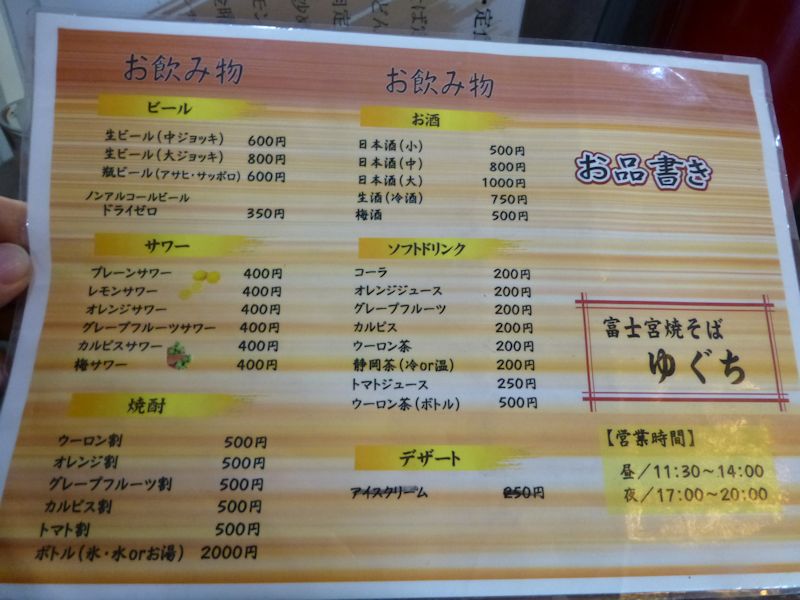 お飲み物
ビール
生ビール(中ジョッキ) 600円
生ビール(大ジョッキ) 800円
瓶ビール(アサヒ・サッポロ) 600円
ノンアルコールビール
ドライゼロ 350円
サワー
プレーンサワー 400円
レモンサワー 400円
オレンジサワー 400円
グレープフルーツサワー 400円
カルピスサワー 400円
梅サワー 400円
焼酎
ウーロン割 500円
オレンジ割 500円
グレープフルーツ割 500円
カルピス割 500円
トマト割 500円
ボトル(氷・水orお湯) 2000円
お飲み物
お酒
日本酒(小) 500円
日本酒(中) 800円
日本酒(大) 1000円
生酒(冷酒) 750円
梅酒 500円
ソフトドリンク
コーラ 200円
オレンジジュース 200円
グレープフルーツ 200円
カルピス 200円
ウーロン茶 200円
静岡茶(冷or温) 200円
トマトジュース 250円
ウーロン茶(ボトル) 500円
デザート
アイスクリーム 250円
お品書き
富士宮焼そば
ゆぐち
【営業時間】
昼/11:30～14:00
夜/17:00～20:00